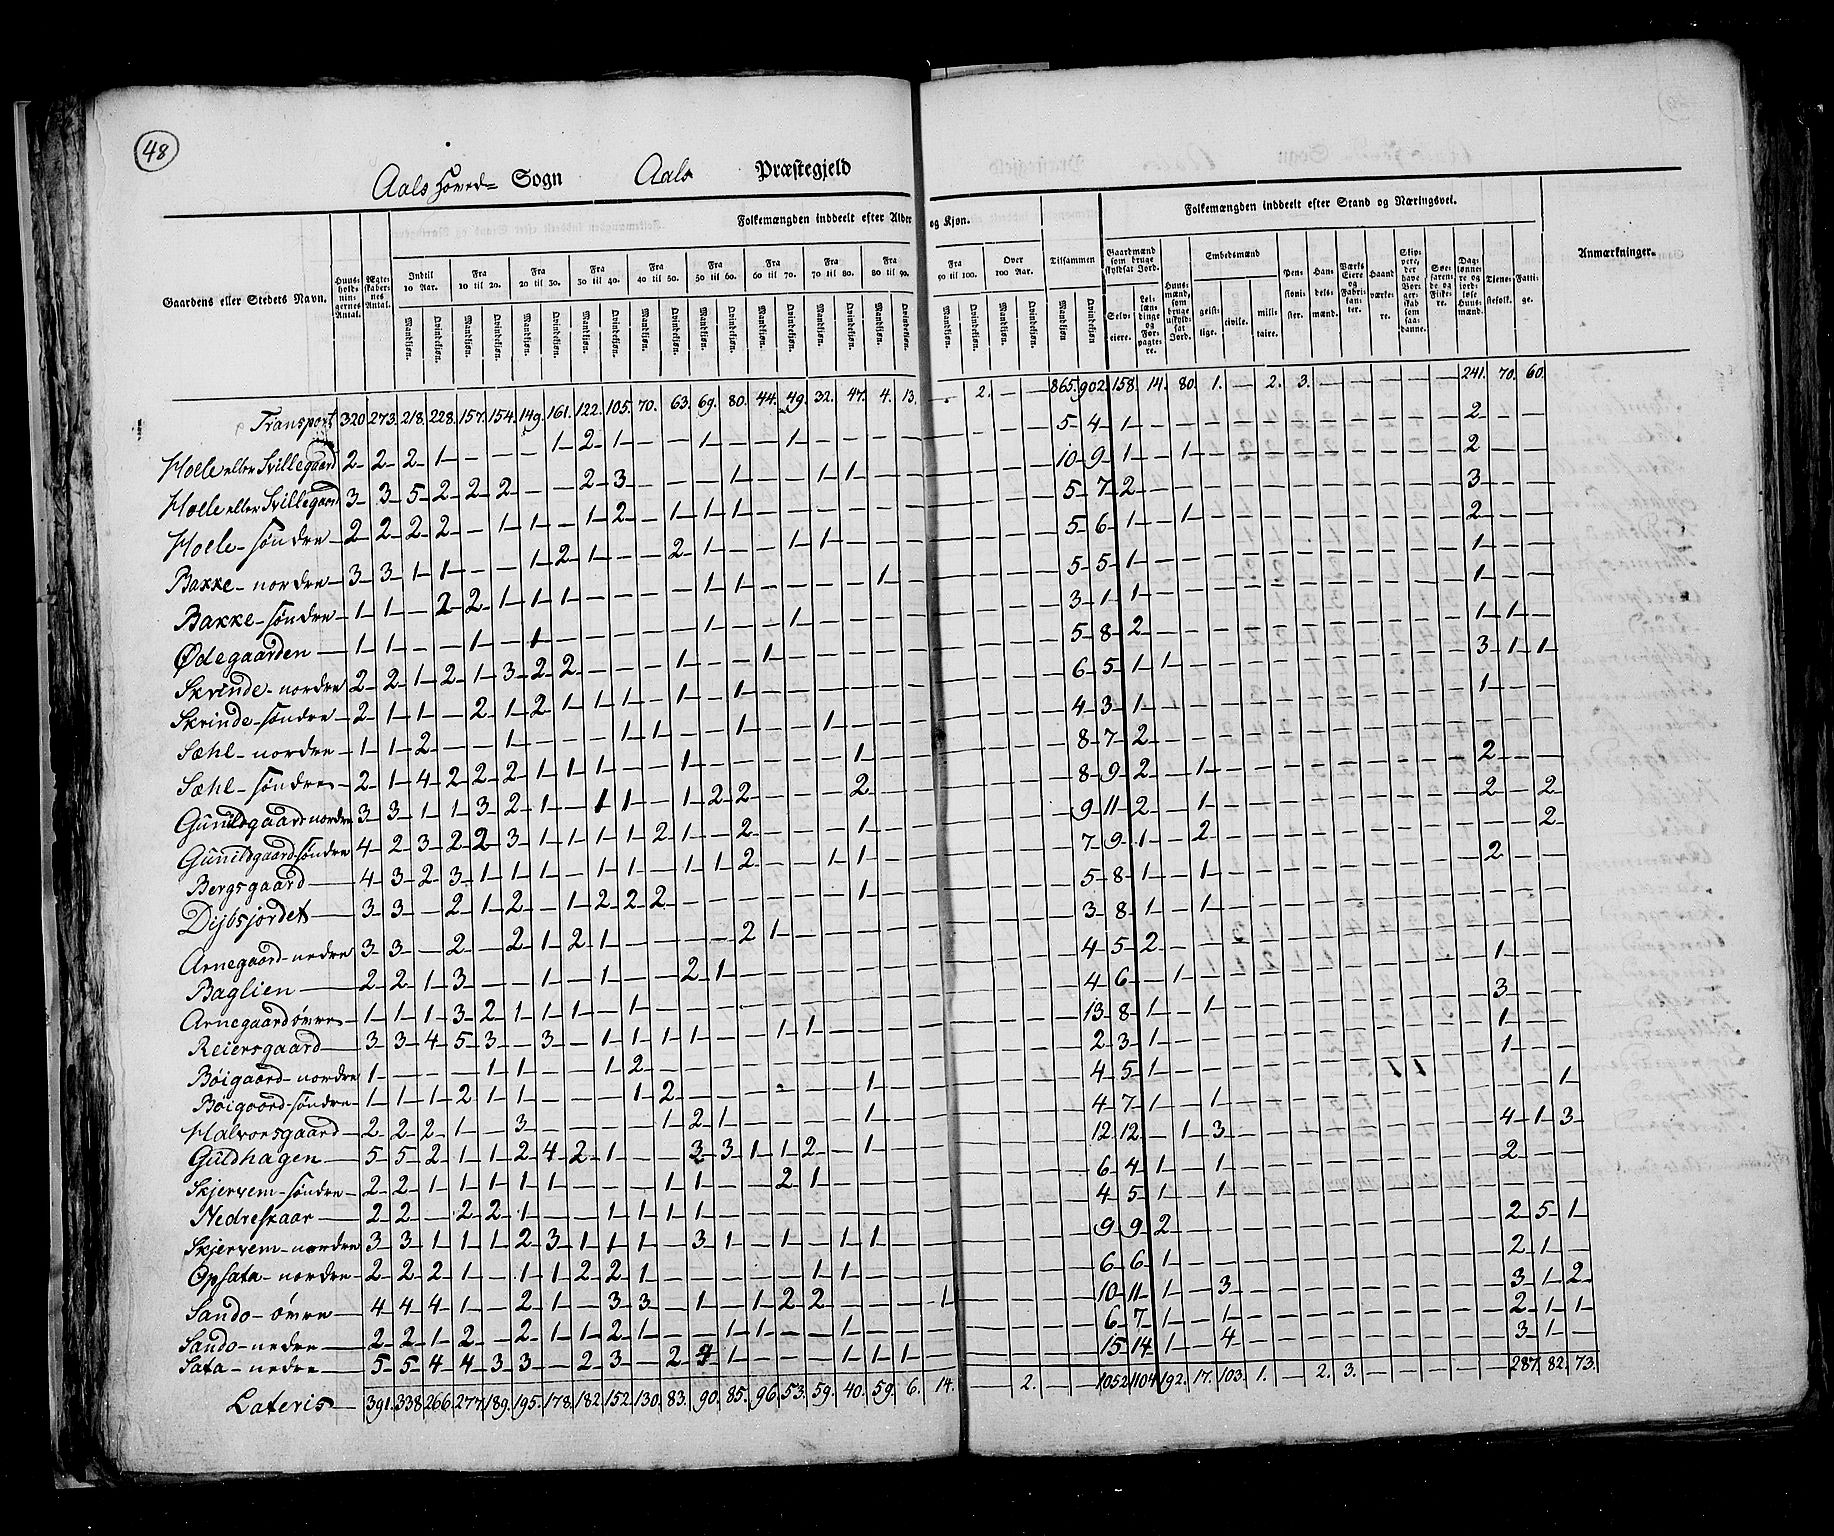 48
Aals Hoved= Sogn Aals Præstegjeld
Gaardens eller Stedets Navn.
Huus-holdningernes Antal.
Ægteskabernes Antal.
Folkemængden inddeelt efter Alder og Kjøn.
Indtil 10 Aar. Fra 10 til 20. Fra 20 til 30. Fra 30 til 40. Fra 40 til 50. Fra 50 til 60. Fra 60 til 70. Fra 70 til 80. Fra 80 til 90. Fra 90 til 100. Over 100 Aar. Tilsammen
Mandkjøn. Qvindekjøn.
Folkemængden inddeelt efter Stand og Næringsvei.
Gaardmænd som bruge skyldsat Jord.
Selveiere.
Leilændinge og Forpagtere.
Huusmænd, som bruge uskyldsat Jord.
Embedsmænd
geistlige. civile. militaire.
Pensionister.
Handelsmænd.
Værks Eiere og Fabrikanter.
Haandværkere.
Skippere, der have Borgerskab som saadanne.
Søefarende og Fiskere.
Daglønnere og jordløse Huusmænd.
Tjenestefolk.
Fattige.
Anmærkninger.
Transport 320. 273. 218. 228. 157. 154. 149. 161. 122. 105. 70. 63. 69. 80. 44. 49. 32. 47. 4. 13. - 2. - - 865. 902. 158. 14. 80. 1. - 2. 3. - - - - - 241. 70. 60.
Holle eller Svillegaard 2 2 2 1 - - - 1 2 1 - - 1 - - 1 - - - - 5 4 1 2
Holle eller Svillegaard 3 3 5 2 2 2 - - 2 3 - - - 1 - - 1 1 - - 10 9 1 - 1 2
Holle - søndre 2 2 2 2 - 1 1 - 1 2 - 1 1 1 - - - - - - 5 7 2 3
Bakke - nordre 3 3 1 1 - - 1 2 1 - - 2 1 - - 1 1 - - - 5 6 1 - 1 2
Bakke - søndre 1 1 - 2 2 1 1 1 - - - - 1 1 - - - - 1 - 5 5 1 1
Ødegaarden 1 1 - - 1 - 1 - - - - - 1 - - 1 - - - - 3 1 1 1
Skrinde - nordre 2 2 1 2 1 3 2 2 - - - 1 - - 1 - - - - - 5 8 2 1 1
Skrinde - søndre 2 1 1 - 2 1 2 1 1 1 - 1 - 1 - - - - - - 6 5 1 1 3 1 1
Sæhl - nordre 1 1 2 - - 1 - - - 1 1 - - 1 - - 1 - - - 4 3 1 1
Sæhl - søndre 2 1 4 2 2 2 1 1 1 - - 1 - - - - - 1 - - 8 7 2
Gunildgaard nordre 3 3 1 1 3 2 1 - 1 1 - 1 2 2 - - - 2 - - 8 9 2 - 1 2
Gunildgaard søndre 4 2 3 2 2 3 1 1 1 1 2 1 - 2 - - - 1 - - 9 11 2 - 1 2 - 2
Bergsgaard 4 3 2 3 1 1 1 - 1 1 - 1 1 2 - - 1 1 - - 7 9 1 - 2 2
Dybsjordet 3 3 - 2 1 2 - 1 2 2 2 - - - - - - 1 - - 5 8 1 - 1 2
Arnegaard - nedre 3 3 - 2 - 2 1 2 1 - - - - 2 1 - - - - - 3 8 1 - 1
Baglien 2 2 1 3 - - 1 - 1 - - 2 1 - - - - - - - 4 5 2
Arnegaard øvre 1 1 1 3 2 1 1 1 - 1 - - - - - - - - - - 4 6 - 1 1
Reiersgaard 3 3 4 5 3 - 3 - 1 1 1 1 - - 1 1 - - - - 13 8 1 - 1 3
Bøigaard - nordre 1 - - - - 1 1 - - 1 2 - - - - - - - - - 2 3 1 1
Bøigaard - søndre 1 1 1 2 1 1 - - - 1 2 - - - - - - 1 - - 4 5 1 1
Halvorsgaard 2 2 2 1 - 3 - - - - 1 2 1 - - - - 1 - - 4 7 1 - 1 1
Guldhagen 5 5 2 1 1 2 4 2 1 - - 3 3 1 1 2 - 1 - - 12 12 - 1 3 4 1 3
Skjervem - søndre 2 2 1 1 1 1 1 - - - 1 1 - - 2 1 - - - - 6 4 1 - 1 2
Nedreskaar 2 2 - 2 2 1 - - 1 1 1 1 - - - - - - - - 4 5 1 - 1
Skjervem - nordre 3 3 1 1 1 2 3 1 1 1 - 3 1 - 1 - 1 1 - - 9 9 2 2 5 1
Opsata - nordre 2 2 2 1 - 1 1 2 2 1 - - - - - 1 1 - - - 6 6 1 2 1
Sando - øvre 4 4 4 1 - 2 1 - 3 3 - 1 - 1 2 2 - - - 1 10 11 1 - 3 3 1 2
Sando - nedre 2 2 1 2 - 2 1 1 2 1 - - 1 1 - - 1 - - - 6 7 1 - 1 2 1 1
Sata - nedre 5 5 4 4 3 3 - 2 3 - 2 4 1 - - - 1 1 1 - 15 14 1 - 4 3 1
Lateris 391. 338 266. 277. 189. 195. 178. 182. 152. 130. 83. 90. 85. 96. 53. 59. 40. 59. 6. 14. - 2. - - 1052 1104 192. 17. 103. 1. - 2. 3. - - - - - 287. 82. 73.